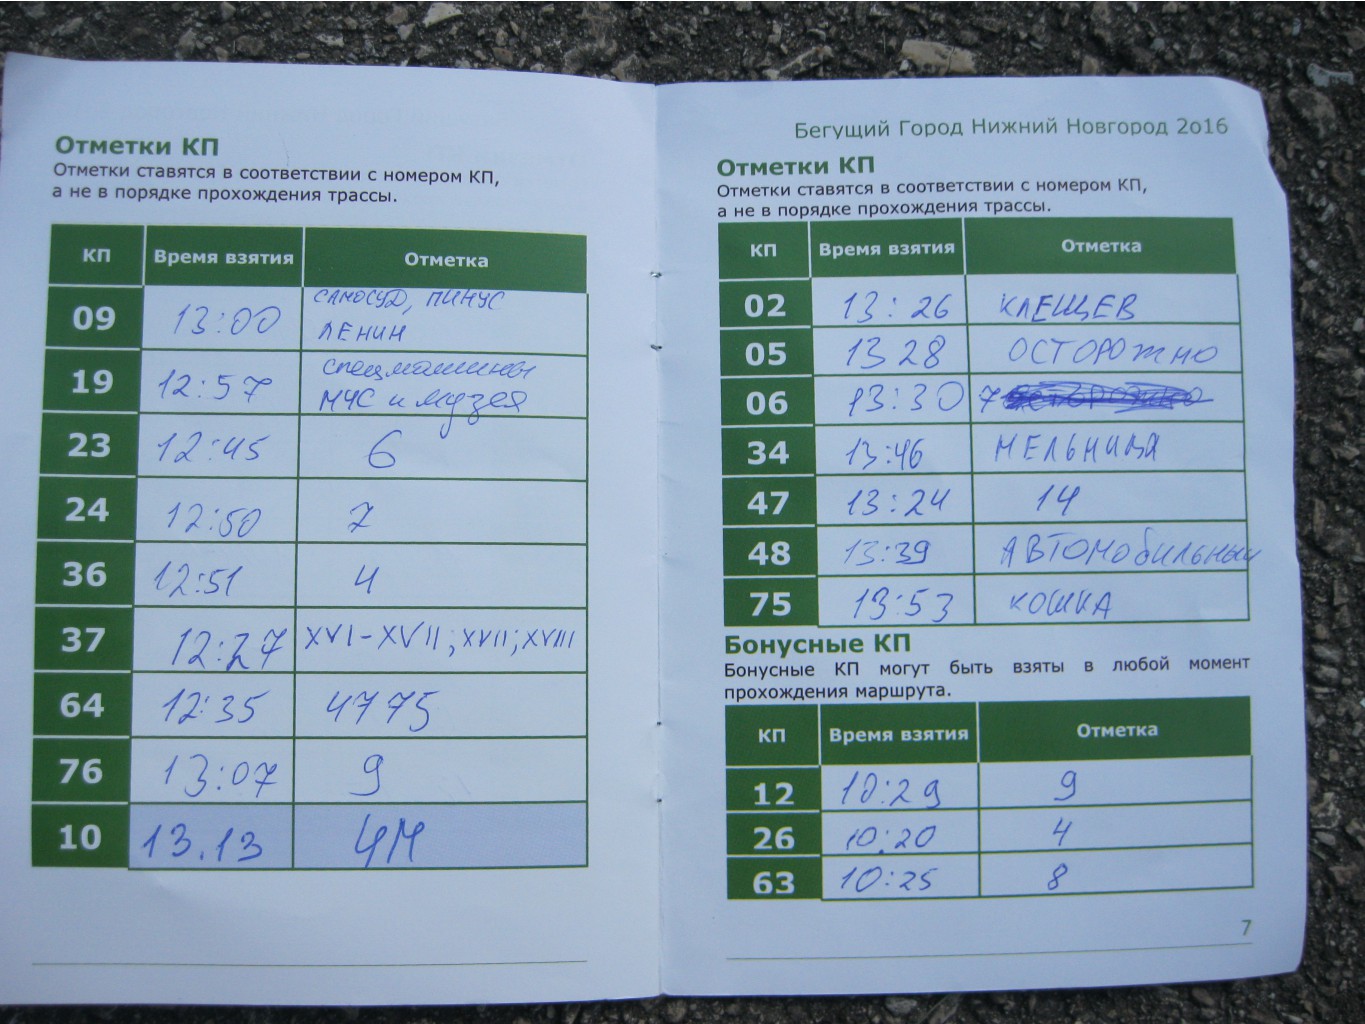 Отметки КП
Отметки ставятся в соответствии с номером КП,
а не в порядке прохождения трассы.
КП Время взятия Отметка
09 13:00 САМОСУД, ПИНУС
ЛЕНИН
19 12:57 спецмашины
МЧС и музея
23 12:45 6
24 12:50 7
36 12:51 4
37 12:27 XVI-XVII; XVII; XVIII
64 12:35 4775
76 13:07 9
10 13.13 4М
Бегущий Город Нижний Новгород 2о16
Отметки КП
Отметки ставятся в соответствии с номером КП,
а не в порядке прохождения трассы.
КП Время взятия Отметка
02 13:26 КЛЕЩЕВ
05 13 28 ОСТОРОЖНО
06 13:30 7
34 13:46 МЕЛЬНИЦА
47 13:24 14
48 13:39 АВТОМОБИЛЬНЫЙ
75 13:53 КОШКА
Бонусные КП
Бонусные КП могут быть взяты в любой момент
прохождения маршрута.
КП Время взятия Отметка
12 10:29 9
26 10:20 4
63 10:25 8
7